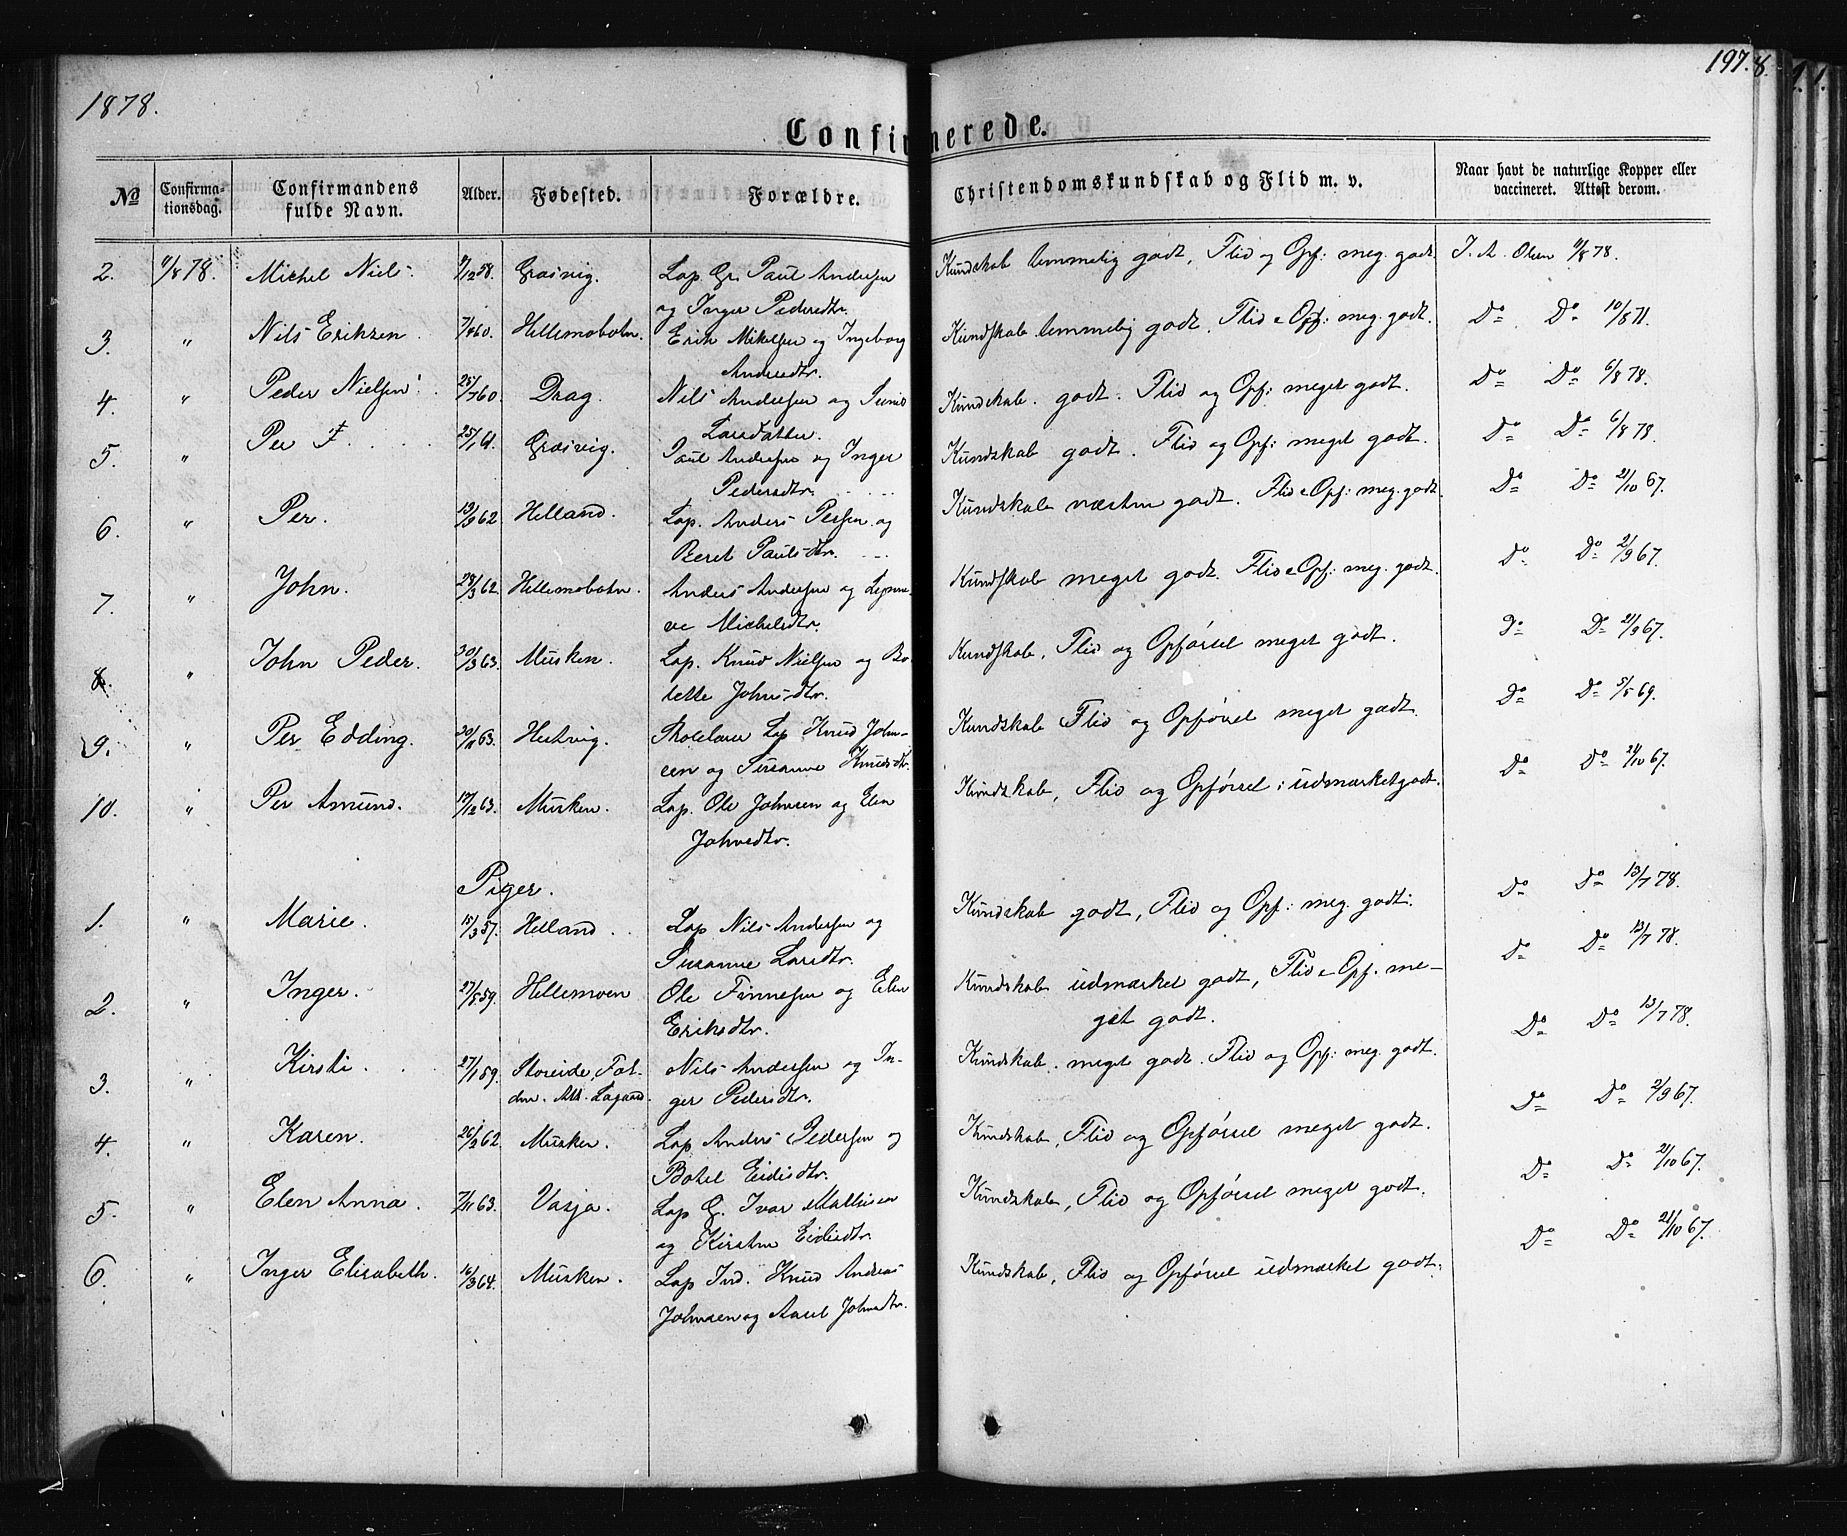 1878.
197.
Confirmerede.
No
Confirma-
tionsdag.
Confirmandens
fulde Navn.
Alder.
Fødested.
Forældre.
Christendomskundskab og Flid m. v.
Naar havt de naturlige Kopper eller
vaccineret. Attest derom.
2. 11/8 78. Michel Niels- 9/12 58. Grosvig. Lap. Gr. Paul Andersen Kundskab temmelig godt, Flid og Opf: meg. godt. J. A. Olsen 11/8 78.
og Inger Pedersdtr.
3. " Nils Eriksen. 7/4 60. Hellemobotn. Erik Mikelsen og Ingeborg Kundskab temmelig godt. Flid e Opf: meg. godt. Do Do 10/8 71.
Andersdtr.
4. " Peder Nielsen. 25/7 60. Drag. Nils Andersen og Kundskab. godt. Flid og Opf: meget godt. Do Do 6/8 78.
Larsdatter.
5. " Per F. 25/1 61. Grosvig. Paul Andersen og Inger Kundskab godt. Flid og Opf: meget godt. Do Do 6/8 78.
Pedersdtr.
6. " Per. 13/9 62 Helland. Lap. Anders Persen og Kundskab næsten godt. Flid e Opf: meg. godt. Do Do 21/10 67.
Beret Pauls-dtr.
7. " John. 28/3 62. Hellemobotn. Anders Andersen og Kundskab meget godt. Flid e Opf: meg. godt. Do Do 2/9 67.
ve Michelsdtr.
8. " John Peder. 30/3 63. Musken. Lap. Knud Nielsen og Bo- Kundskab, Flid og Opførsel meget godt. Do Do 2/9 67.
lette Johns-dtr.
9. " Per Edding. 30/11 63. Hestvig. Skolelærer Lap Knud John- Kundskab Flid og Opførsel meget godt. Do Do 5/5 69.
sen og Susanne Knudsdtr.
10. " Per Amund. 17/12 63. Musken. Lap. Ole Johnsen og Elen Kundskab, Flid og Opførsel: udmærket godt. Do Do 21/10 67.
Johnsdtr.
Piger.
1. " Marie. 15/3 57. Helland. Lap. Nils Andersen og Kundskab godt, Flid og Opf: meg. godt. Do Do 13/7 78.
Susanne Larsdtr.
2. " Inger. 27/5 59. Hellemoen Ole Finnesen og Elen Kundskab udmærket godt, Flid e Opf. me- Do Do 13/7 78.
Eriksdtr. get godt.
3. " Kirsti. 27/1 59. Storeide, Fol- Nils Andersen og In- Kundskab. meget godt. Flid og Opf: meg. godt. Do Do 13/7 78.
den. ger Pedersdtr.
4. " Karen. 26/2 62. Musken. Lap Anders Pedersen og Kundskab, Flid og Opførsel meget godt. Do Do 2/9 67.
Botel Eidisdtr.
5. " Elen Anna. 7/11 63. Vasja. Lap G. Ivar Mathisen Kundskab, Flid og Opførsel meget godt. Do Do 21/10 67.
og Kirsten Eidisdtr.
6. " Inger Elisabeth. 16/3 64. Musken. Lap Ind. Knud Andreas Kundskab, Flid og Opførsel udmærket godt. Do Do 21/10 67.
Johnsen og Johnsdtr.